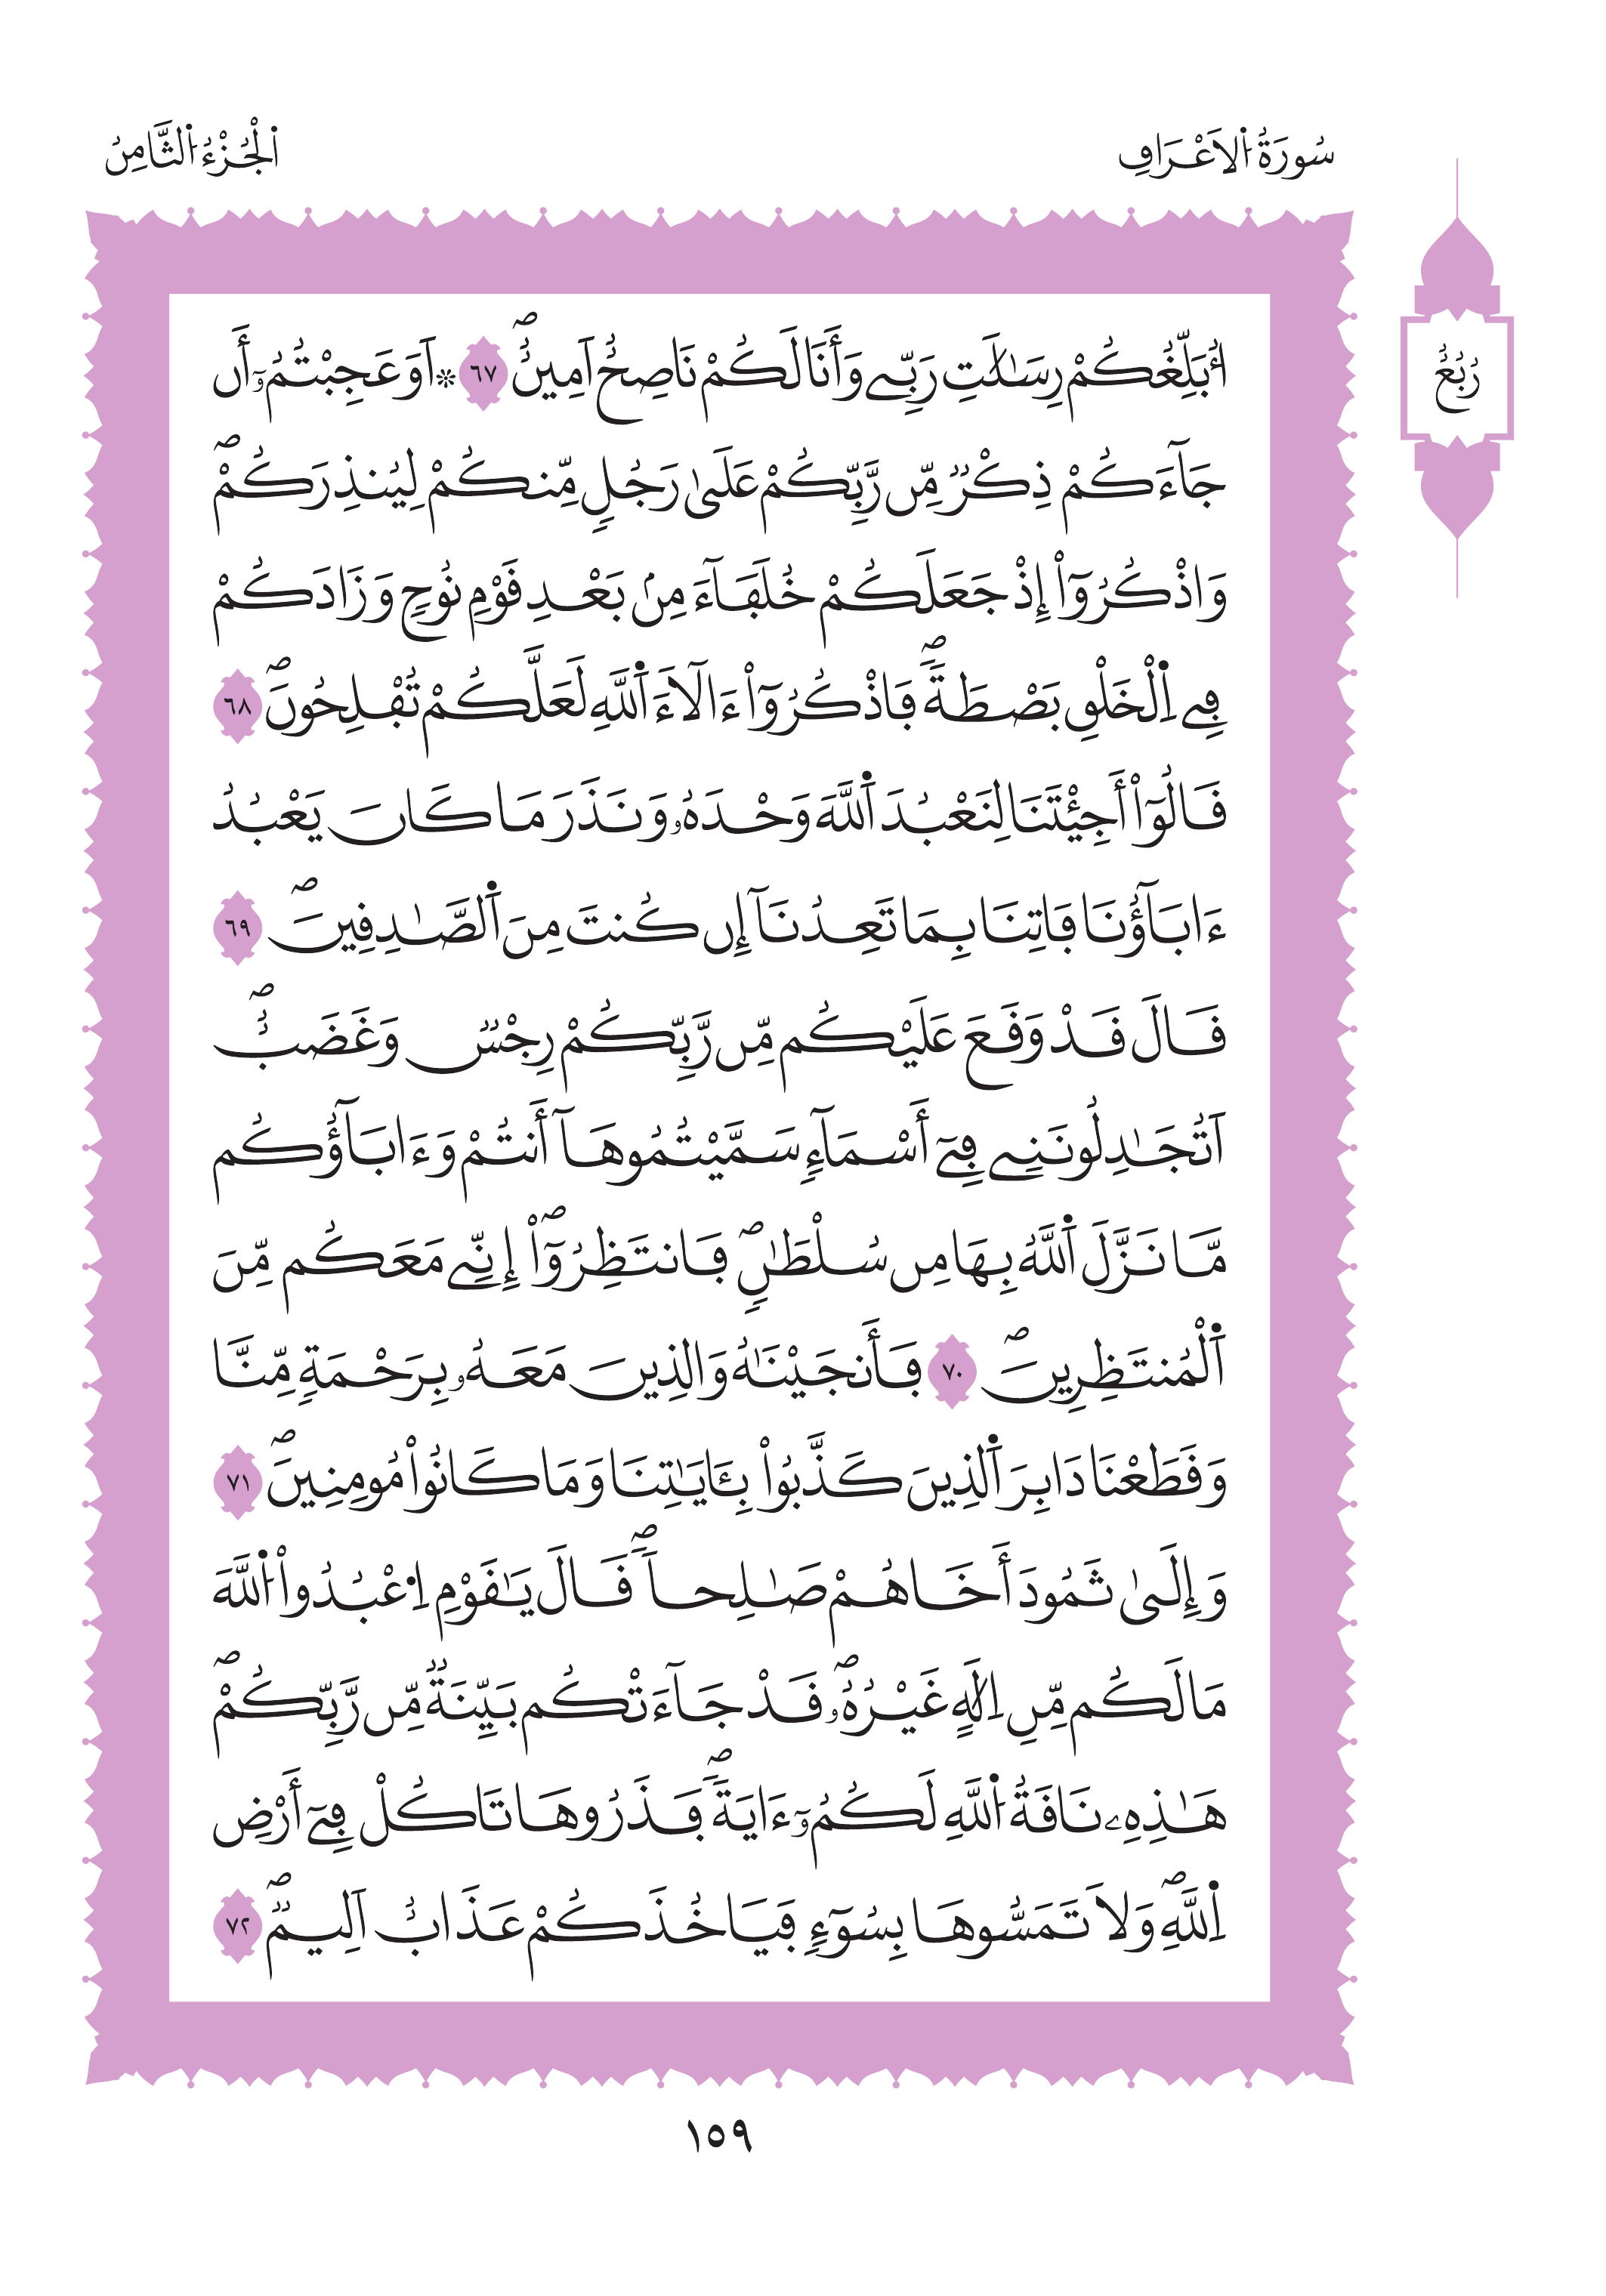 سُورَةُ اُ۬لَاعْرَافِ
اَ۬لْجُزْءُ اُ۬لثَّامِنُ
رُبُعُ
أُبَلِّغُكُمْ رِسَٰلَٰتِ رَبِّے وَأَنَا لَكُمْ نَاصِحٌ اَمِينٌۖ ٦٧ ۞ اَوَعَجِبْتُمُۥٓ أَن
جَآءَكُمْ ذِكْرٞ مِّن رَّبِّكُمْ عَلَىٰ رَجُلٖ مِّنكُمْ لِيُنذِرَكُمْۖ
وَاذْكُرُوٓاْ إِذْ جَعَلَكُمْ خُلَفَآءَ مِنۢ بَعْدِ قَوْمِ نُوحٖ وَزَادَكُمْ
فِے اِ۬لْخَلْقِ بَصْۜطَةٗۖ فَاذْكُرُوٓاْ ءَالَآءَ اَ۬للَّهِ لَعَلَّكُمْ تُفْلِحُونَۖ ٦٨
قَالُوٓاْ أَجِئْتَنَا لِنَعْبُدَ اَ۬للَّهَ وَحْدَهُۥ وَنَذَرَ مَا كَانَ يَعْبُدُ
ءَابَآؤُنَا فَاتِنَا بِمَا تَعِدُنَآ إِن كُنتَ مِنَ اَ۬لصَّٰدِقِينَۖ ٦٩
قَالَ قَدْ وَقَعَ عَلَيْكُم مِّن رَّبِّكُمْ رِجْسٞ وَغَضَبٌۖ
اَتُجَٰدِلُونَنِے فِےٓ أَسْمَآءٖ سَمَّيْتُمُوهَآ أَنتُمْ وَءَابَآؤُكُم
مَّا نَزَّلَ اَ۬للَّهُ بِهَا مِن سُلْطَٰنٖۖ فَانتَظِرُوٓاْۖ إِنِّے مَعَكُم مِّنَ
اَ۬لْمُنتَظِرِينَۖ ٧٠ فَأَنجَيْنَٰهُ وَالذِينَ مَعَهُۥ بِرَحْمَةٖ مِّنَّا
وَقَطَعْنَا دَابِرَ اَ۬لذِينَ كَذَّبُواْ بِـَٔايَٰتِنَا وَمَا كَانُواْ مُومِنِينَۖ ٧١
وَإِلَىٰ ثَمُودَ أَخَاهُمْ صَٰلِحاٗۖ قَالَ يَٰقَوْمِ اِ۟عْبُدُواْ اُ۬للَّهَ
مَا لَكُم مِّنِ اِلَٰهٍ غَيْرُهُۥۖ قَدْ جَآءَتْكُم بَيِّنَةٞ مِّن رَّبِّكُمْۖ
هَٰذِهِۦ نَاقَةُ اُ۬للَّهِ لَكُمُۥٓ ءَايَةٗۖ فَذَرُوهَا تَاكُلْ فِےٓ أَرْضِ
اِ۬للَّهِۖ وَلَا تَمَسُّوهَا بِسُوٓءٖ فَيَاخُذَكُمْ عَذَابٌ اَلِيمٞۖ ٧٢
١٥٩